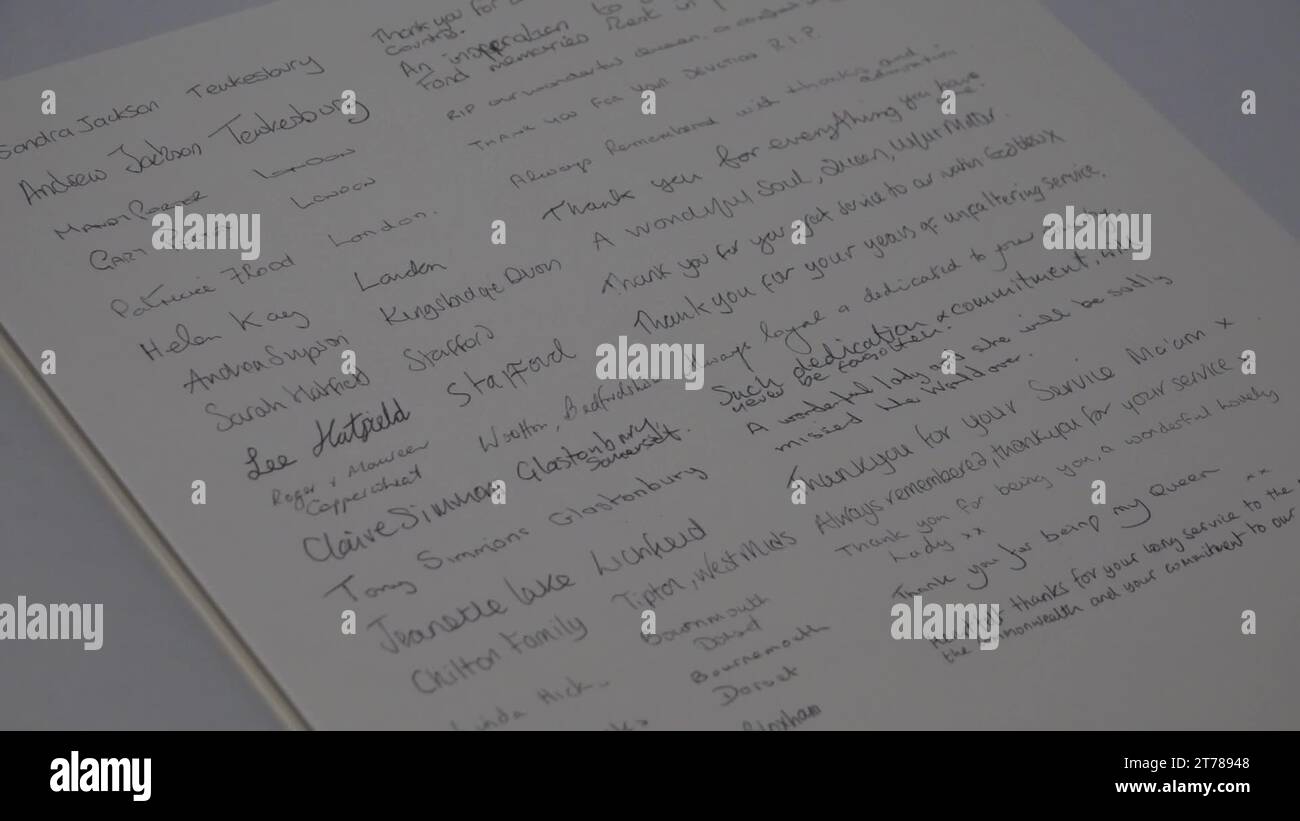 Thank you for
Country.
An insperation to
Fond memories Rest in
Sandra Jackson Tewkesbury
RIP our wonderful Queen, a constant
Andrew Jackson Tewkesbury
THANK YOU FOR YOUR DEVOTION R.I.P.
LONDON
Always Remembered with thanks and
admiration
GARY LONDON
Thank you for everything you have
Patricia Flood London.
A wonderful soul, Queen,
Helen Kay London
Thank you for you great service to our
Andrea Simpson Kingsbridge Devon
Thank you for your years of unfaltering service.
Sarah Hatfield Stafford
Always loyal & dedicated to your
Lee Hatfield Stafford
Such dedication & commitment, will
never be forgotten.
Roger & Maureen
Wootton, Bedfordshire
A wonderful lady and she will be sadly
missed the world over.
Claire Simmons Glastonbury
Somerset.
Thankyou for your Service Ma'am x
Tony Simmons Glastonbury
Always remembered, thankyou for your service x
Jeanette Lake Lichfield
Thank you for being you, a wonderful lovely
Lady xx
Chilton Family Tipton, West Mids
Thank you for being my Queen xx
Bournmouth
Dorset
Heartfelt thanks for your long service to the
the commonwealth and your commitment to our
Hick
Bournemouth
Dorset
alamy
Image ID: 2T78948
www.alamy.com